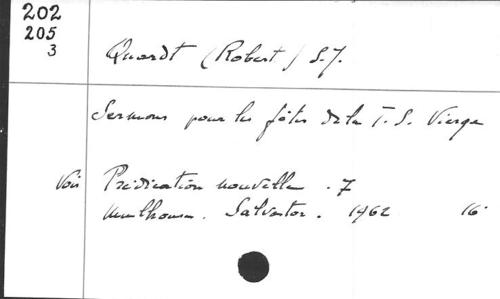 202
205
3
Quardt (Robert) S.J.
Sermons pour les fêtes de la T. S. Vierge
Voir Prédication nouvelle. 7
Mulhouse. Salvator. 1962 16